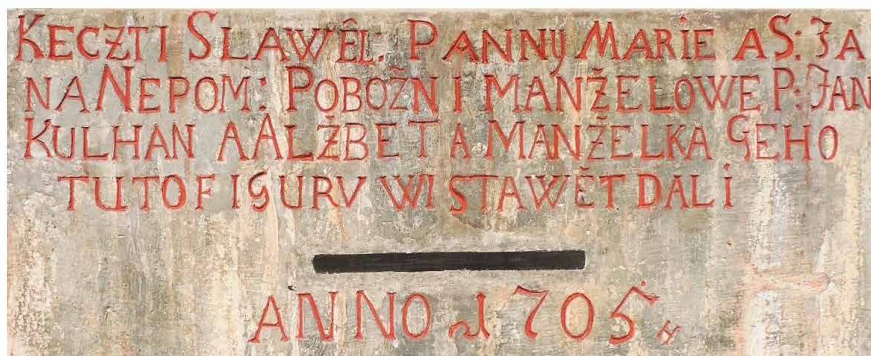 KECZTI SLAWÊL: PANNÿ MARIE A S: JA
NA NEPOM: POBOŽNI MANŽELOWE P: JAN
KULHAN A ALŽBETA MANŽELKA GEHO
TUTO FIGURU WISTAWĚT DALI
ANNO 1705